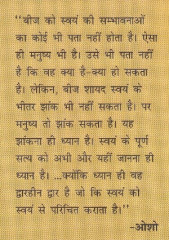 "बीज को स्वयं की सम्भावनाओं
का कोई भी पता नहीं होता है। ऐसा
ही मनुष्य भी है। उसे भी पता नहीं
है कि वह क्या है-क्या हो सकता
है। लेकिन, बीज शायद स्वयं के
भीतर झांक भी नहीं सकता है। पर
मनुष्य तो झांक सकता है। यह
झांकना ही ध्यान है। स्वयं के पूर्ण
सत्य को अभी और यहीं जानना ही
ध्यान है। ...क्योंकि ध्यान ही वह
द्वारहीन द्वार है जो कि स्वयं को
स्वयं से परिचित कराता है।"
-ओशो